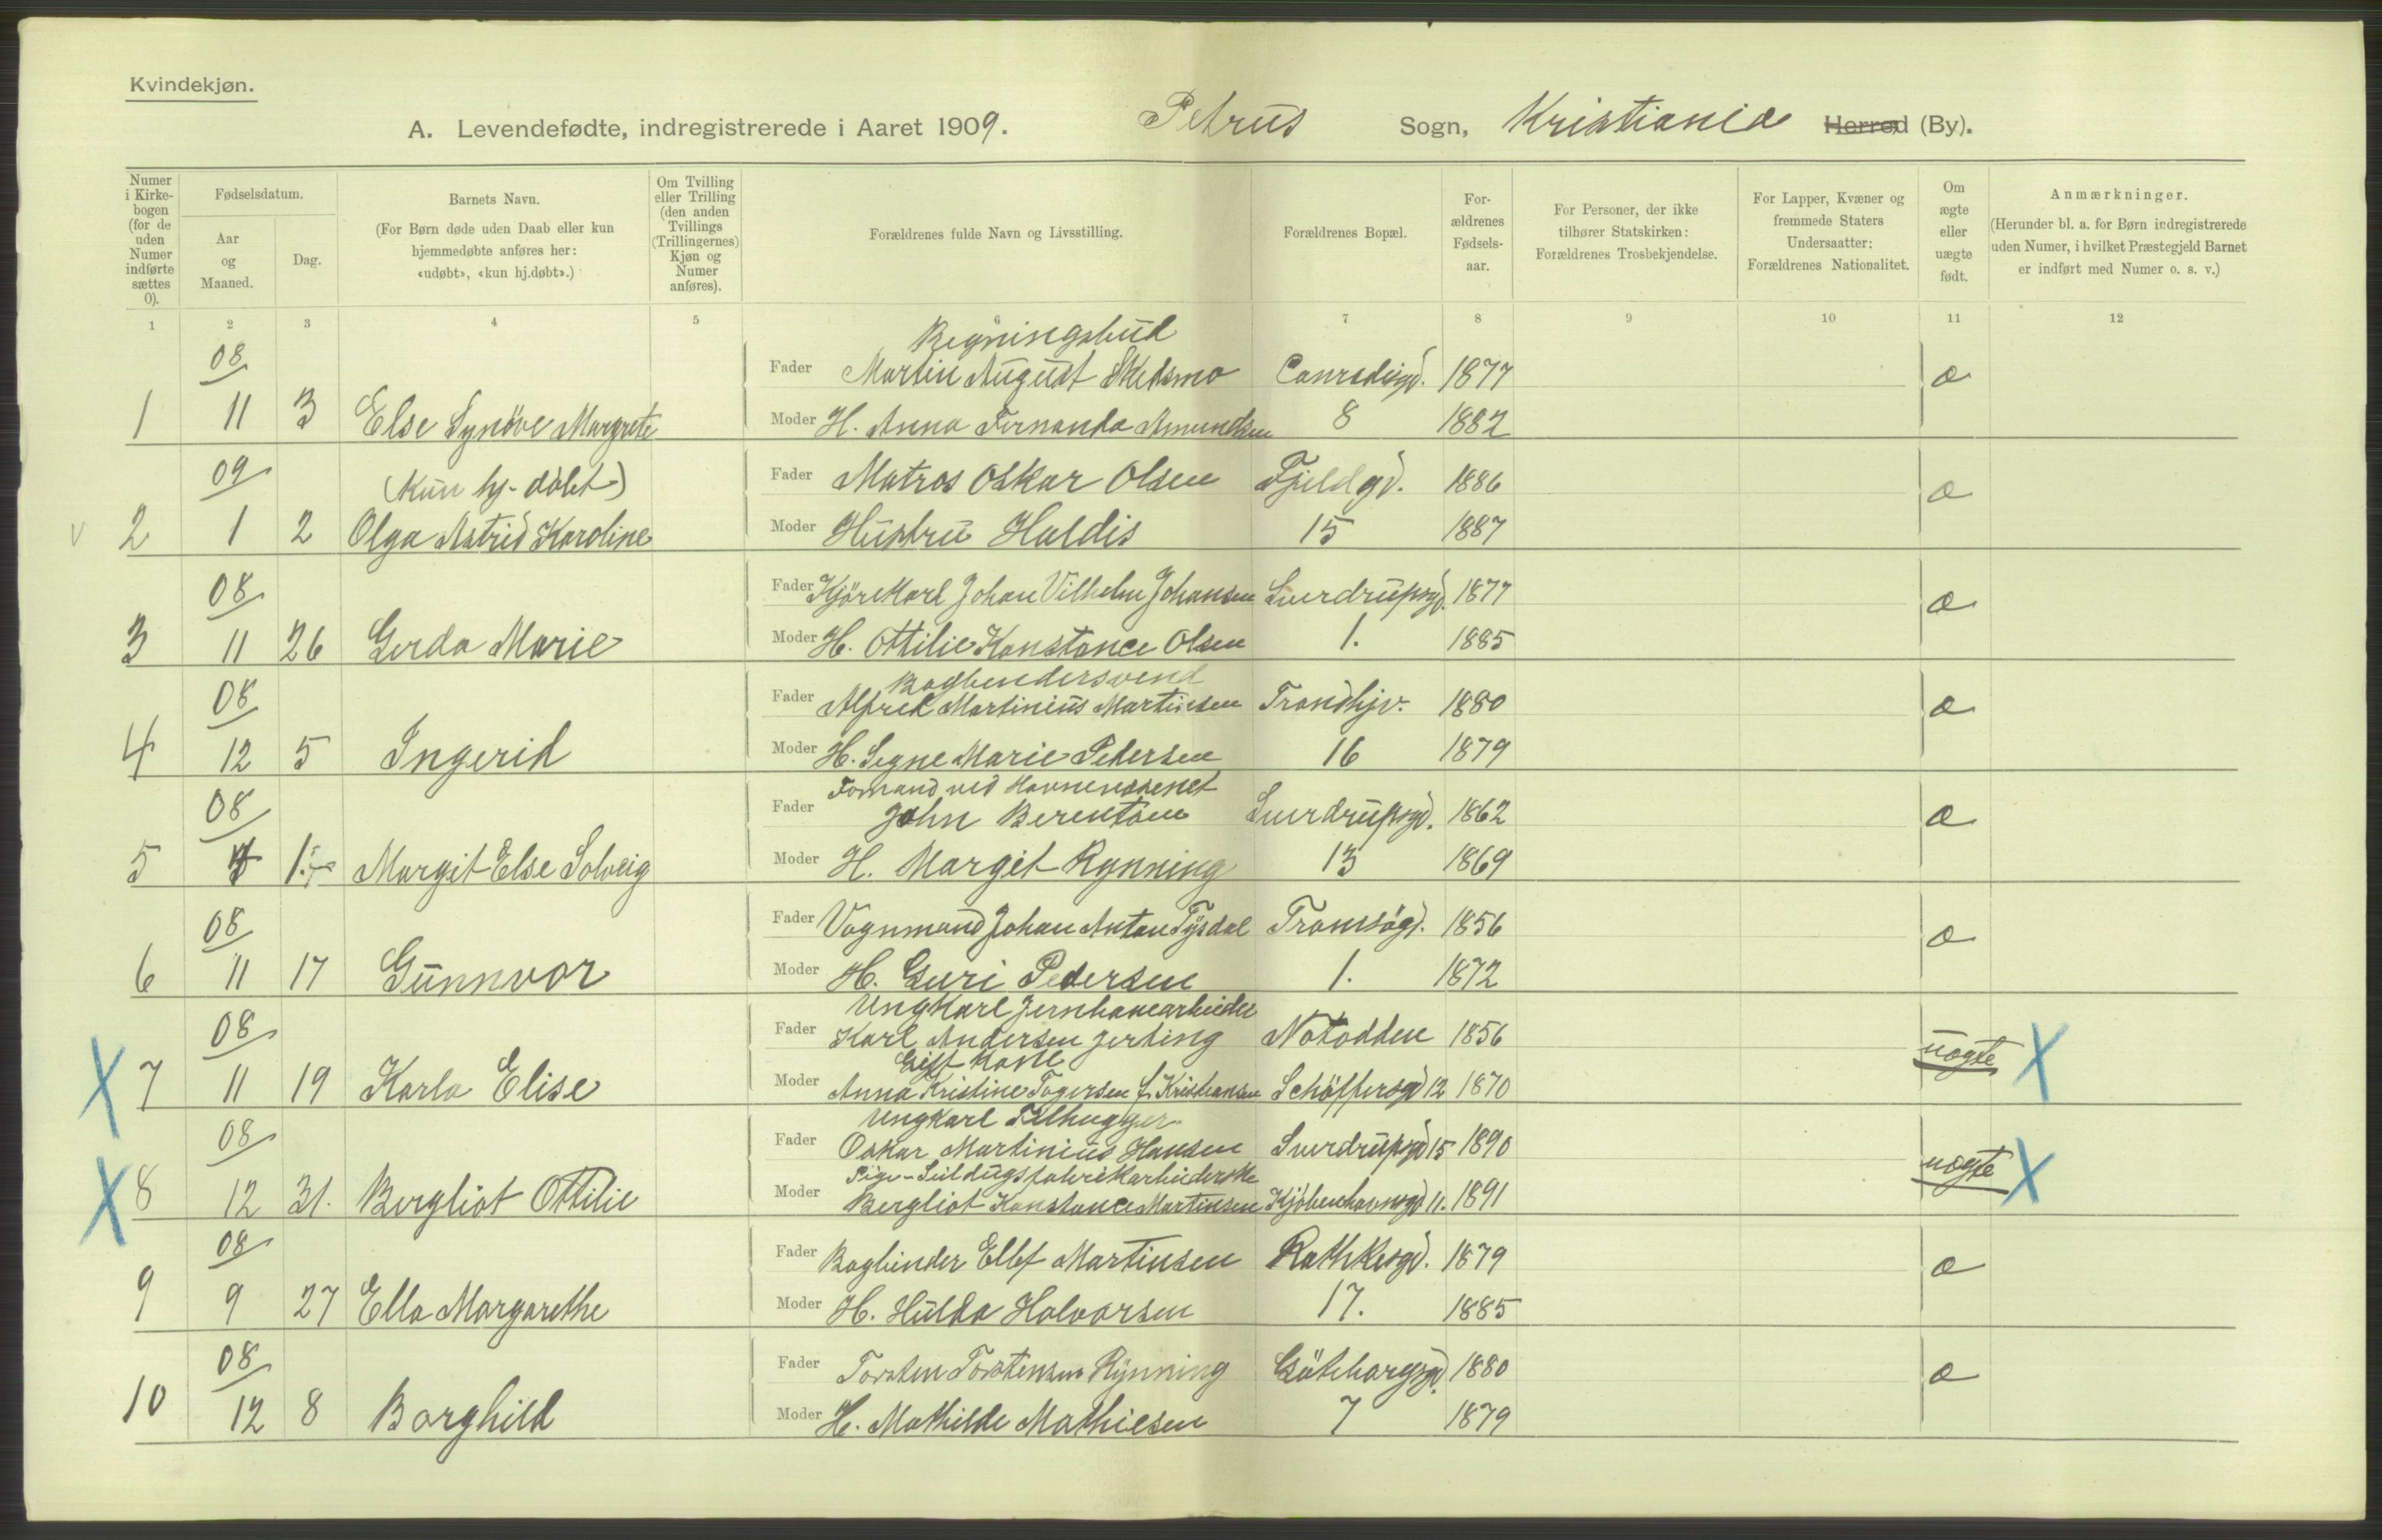 Kvindekjøn.
A. Levendefødte, indregistrerede i Aaret 1909. Petrus Sogn, Kristiania Herred (By).
Numer i Kirkebogen (for de uden Numer indførte sættes 0).
Fødselsdatum.
Aar og Maaned.
Dag.
Barnets Navn.
(For Børn døde uden Daab eller kun hjemmedøbte anføres her: «udøbt», «kun hj.døbt».)
Om Tvilling eller Trilling (den anden Tvillings (Trillingernes) Kjøn og Numer anføres).
Forældrenes fulde Navn og Livsstilling.
Forældrenes Bopæl.
Forældrenes Fødselsaar.
For Personer, der ikke tilhører Statskirken: Forældrenes Trosbekjendelse.
For Lapper, Kvæner og fremmede Staters Undersaatter: Forældrenes Nationalitet.
Om ægte eller uægte født.
Anmærkninger.
(Herunder bl. a. for Børn indregistrerede uden Numer, i hvilket Præstegjeld Barnet er indført med Numer o. s. v.)
1 2 3 4 5 6 7 8 9 10 11 12
Regningsbud
08 Fader Martin August Skedsmo Conradisgd. 1877 æ
1 11 3 Else Synöve Margrete Moder H. Anna Fernanda Amundsen 8 1882
09 (Kun hj-döbt) Fader Matros Oskar Olsen Fjeldgd. 1886 æ
v 2 1 2 Olga Astrid Karoline Moder Hustru Haldis 15 1887
08 Fader Kjörekarl Johan Vilhelm Johansen Sverdrupsgd. 1877 æ
3 11 26 Gerda Marie Moder H. Ottilie Konstance Olsen 1. 1885
Bogbindersvend
08 Fader Alfred Martinius Martinsen Trondhjv. 1880 æ
4 12 5 Ingerid Moder H. Signe Marie Pedersen 16 1879
Formand ved Havnevæsenet
08 Fader John Berentsen Sverdrupsgd. 1862 æ
5 Margit Else Solveig Moder H. Margit Rynning 13 1869
08 Fader Vognmand Johan Anton Tysdal Tromsögd. 1856 æ
6 11 17 Gunnvor Moder H. Guri Pedersen 1. 1872
Ungkarl Jernbanearbeider
08 Fader Karl Andersen Jerting Notodden 1856 uægte X
Gift Kone
X 7 11 19 Karla Elise Moder Anna Kristine Togersen f. Kristiansen Schöffersgd 12 1870
Ungkarl Filhugger
08 Fader Oskar Martinius Hansen Sverdrupsgd 15 1890 uægte X
Pige-Seildugsfabrikarbeiderske
X 8 12 31. Bergliot Ottilie Moder Bergliot Konstance Martinsen Kjöbenhavnsgd 11. 1891
08 Fader Bogbinder Ellef Martinsen Rathkesgd. 1879 æ
9 9 27 Ella Margarethe Moder H. Hulda Halvorsen 17. 1885
08 Fader Torsten Torstensen Rynning Göteborgsgd. 1880 æ
10 12 8 Borghild Moder H. Mathilde Mathiesen 7 1879